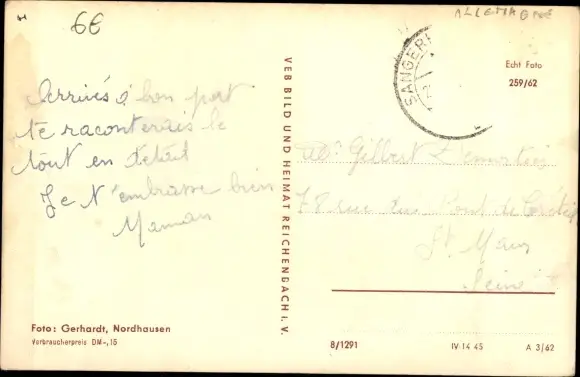 6€
ALLEMAGNE
SANGERH
Echt Foto
259/62
Arrivés à bon port
te raconterais le
tout en détail
Je t'embrasse bien
Maman
VEB BILD UND HEIMAT REICHENBACH I. V.
Gilbert
78 rue du Pont de Créteil
St Maur
Seine
Foto: Gerhardt, Nordhausen
Verbraucherpreis DM -,15
8/1291
IV 14 45
A 3/62